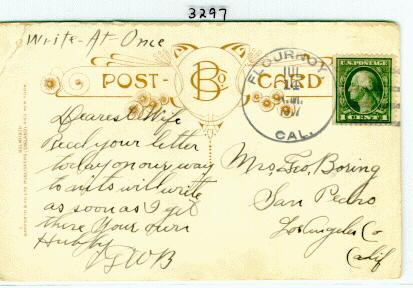 3297
Write-At-Once
POST-CARD
FLOURNOY
JUL
CAL.
U.S. POSTAGE
1 CENT 1
Dearest Wife
Recd your letter
today on our way
to mts will write
as soon as I get
there Your own
Hubby
GWB
Mrs. Geo. Boring
San Pedro
Los Angeles Co
Calif